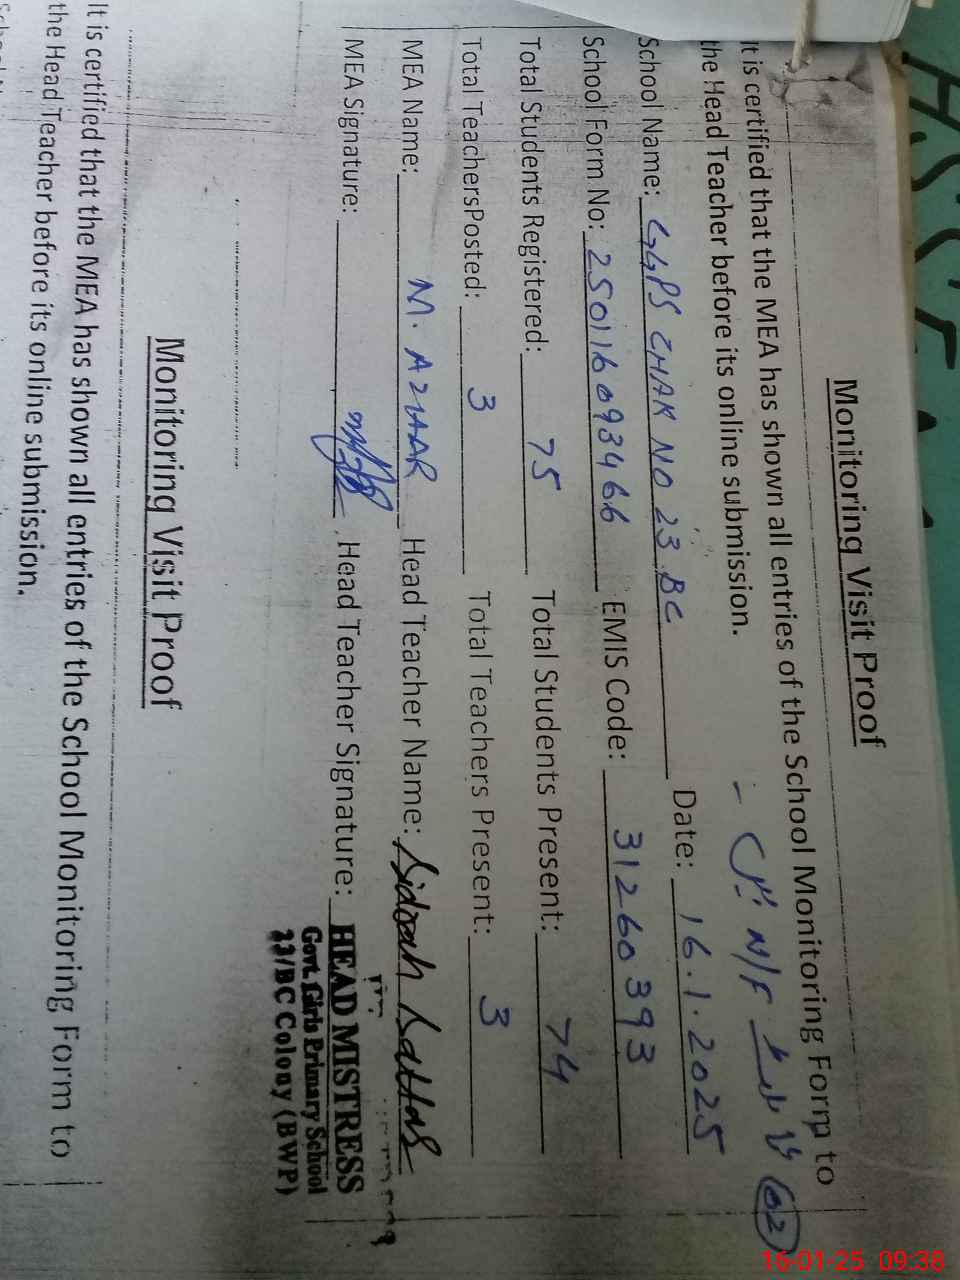 Monitoring Visit Proof
It is certified that the MEA has shown all entries of the School Monitoring Form to
the Head Teacher before its online submission.
N/F 02
School Name: GGPS CHAK NO 23.BC Date: 16.1.2025
School Form No: 25011609 93466 EMIS Code: 31260393
Total Students Registered: 75 Total Students Present: 74
Total TeachersPosted: 3 Total Teachers Present: 3
MEA Name: M. AZHAR Head Teacher Name: Sidrah Sattar
MEA Signature: Head Teacher Signature:
HEAD MISTRESS
Govt. Girls Primary School
23/BC Colony (BWP)
Monitoring Visit Proof
It is certified that the MEA has shown all entries of the School Monitoring Form to
the Head Teacher before its online submission.
16-01-25 09:38